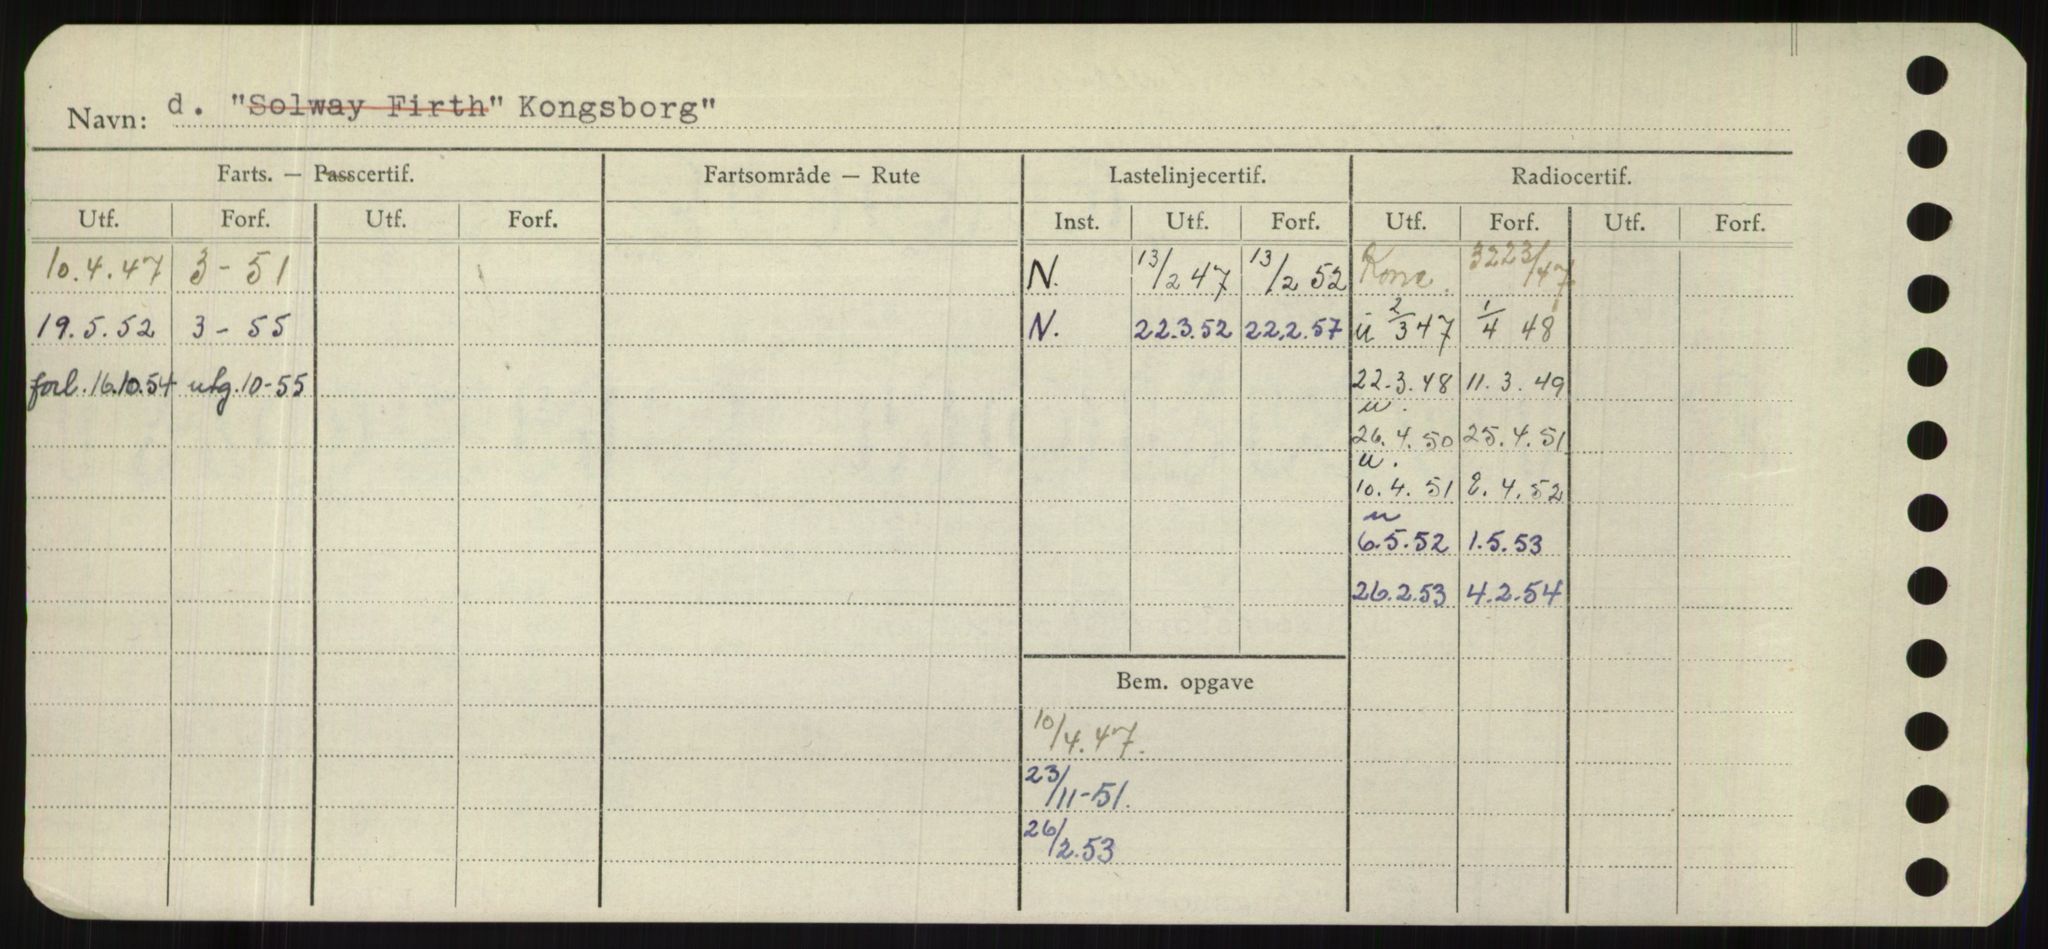 Navn: d. "Solway Firth" Kongsborg"
Farts. — Passcertif. Fartsområde — Rute Lastelinjecertif. Radiocertif.
Utf. Forf. Utf. Forf. Inst. Utf. Forf. Utf. Forf. Utf. Forf.
10.4.47 3-51 N. 13/2 47 13/2 52 3223/47
19.5.52 3-55 N. 22.3.52 22.2.57 ü 2/3 47 1/4 48
forl. 16.10.54 utg. 10-55 22.3.48 11.3.49
u.
26.4.50 25.4.51
u.
10.4.51 2.4.52
u
6.5.52 1.5.53
26.2.53 4.2.54
Bem. opgave
10/4.47.
23/11-51.
26/2.53